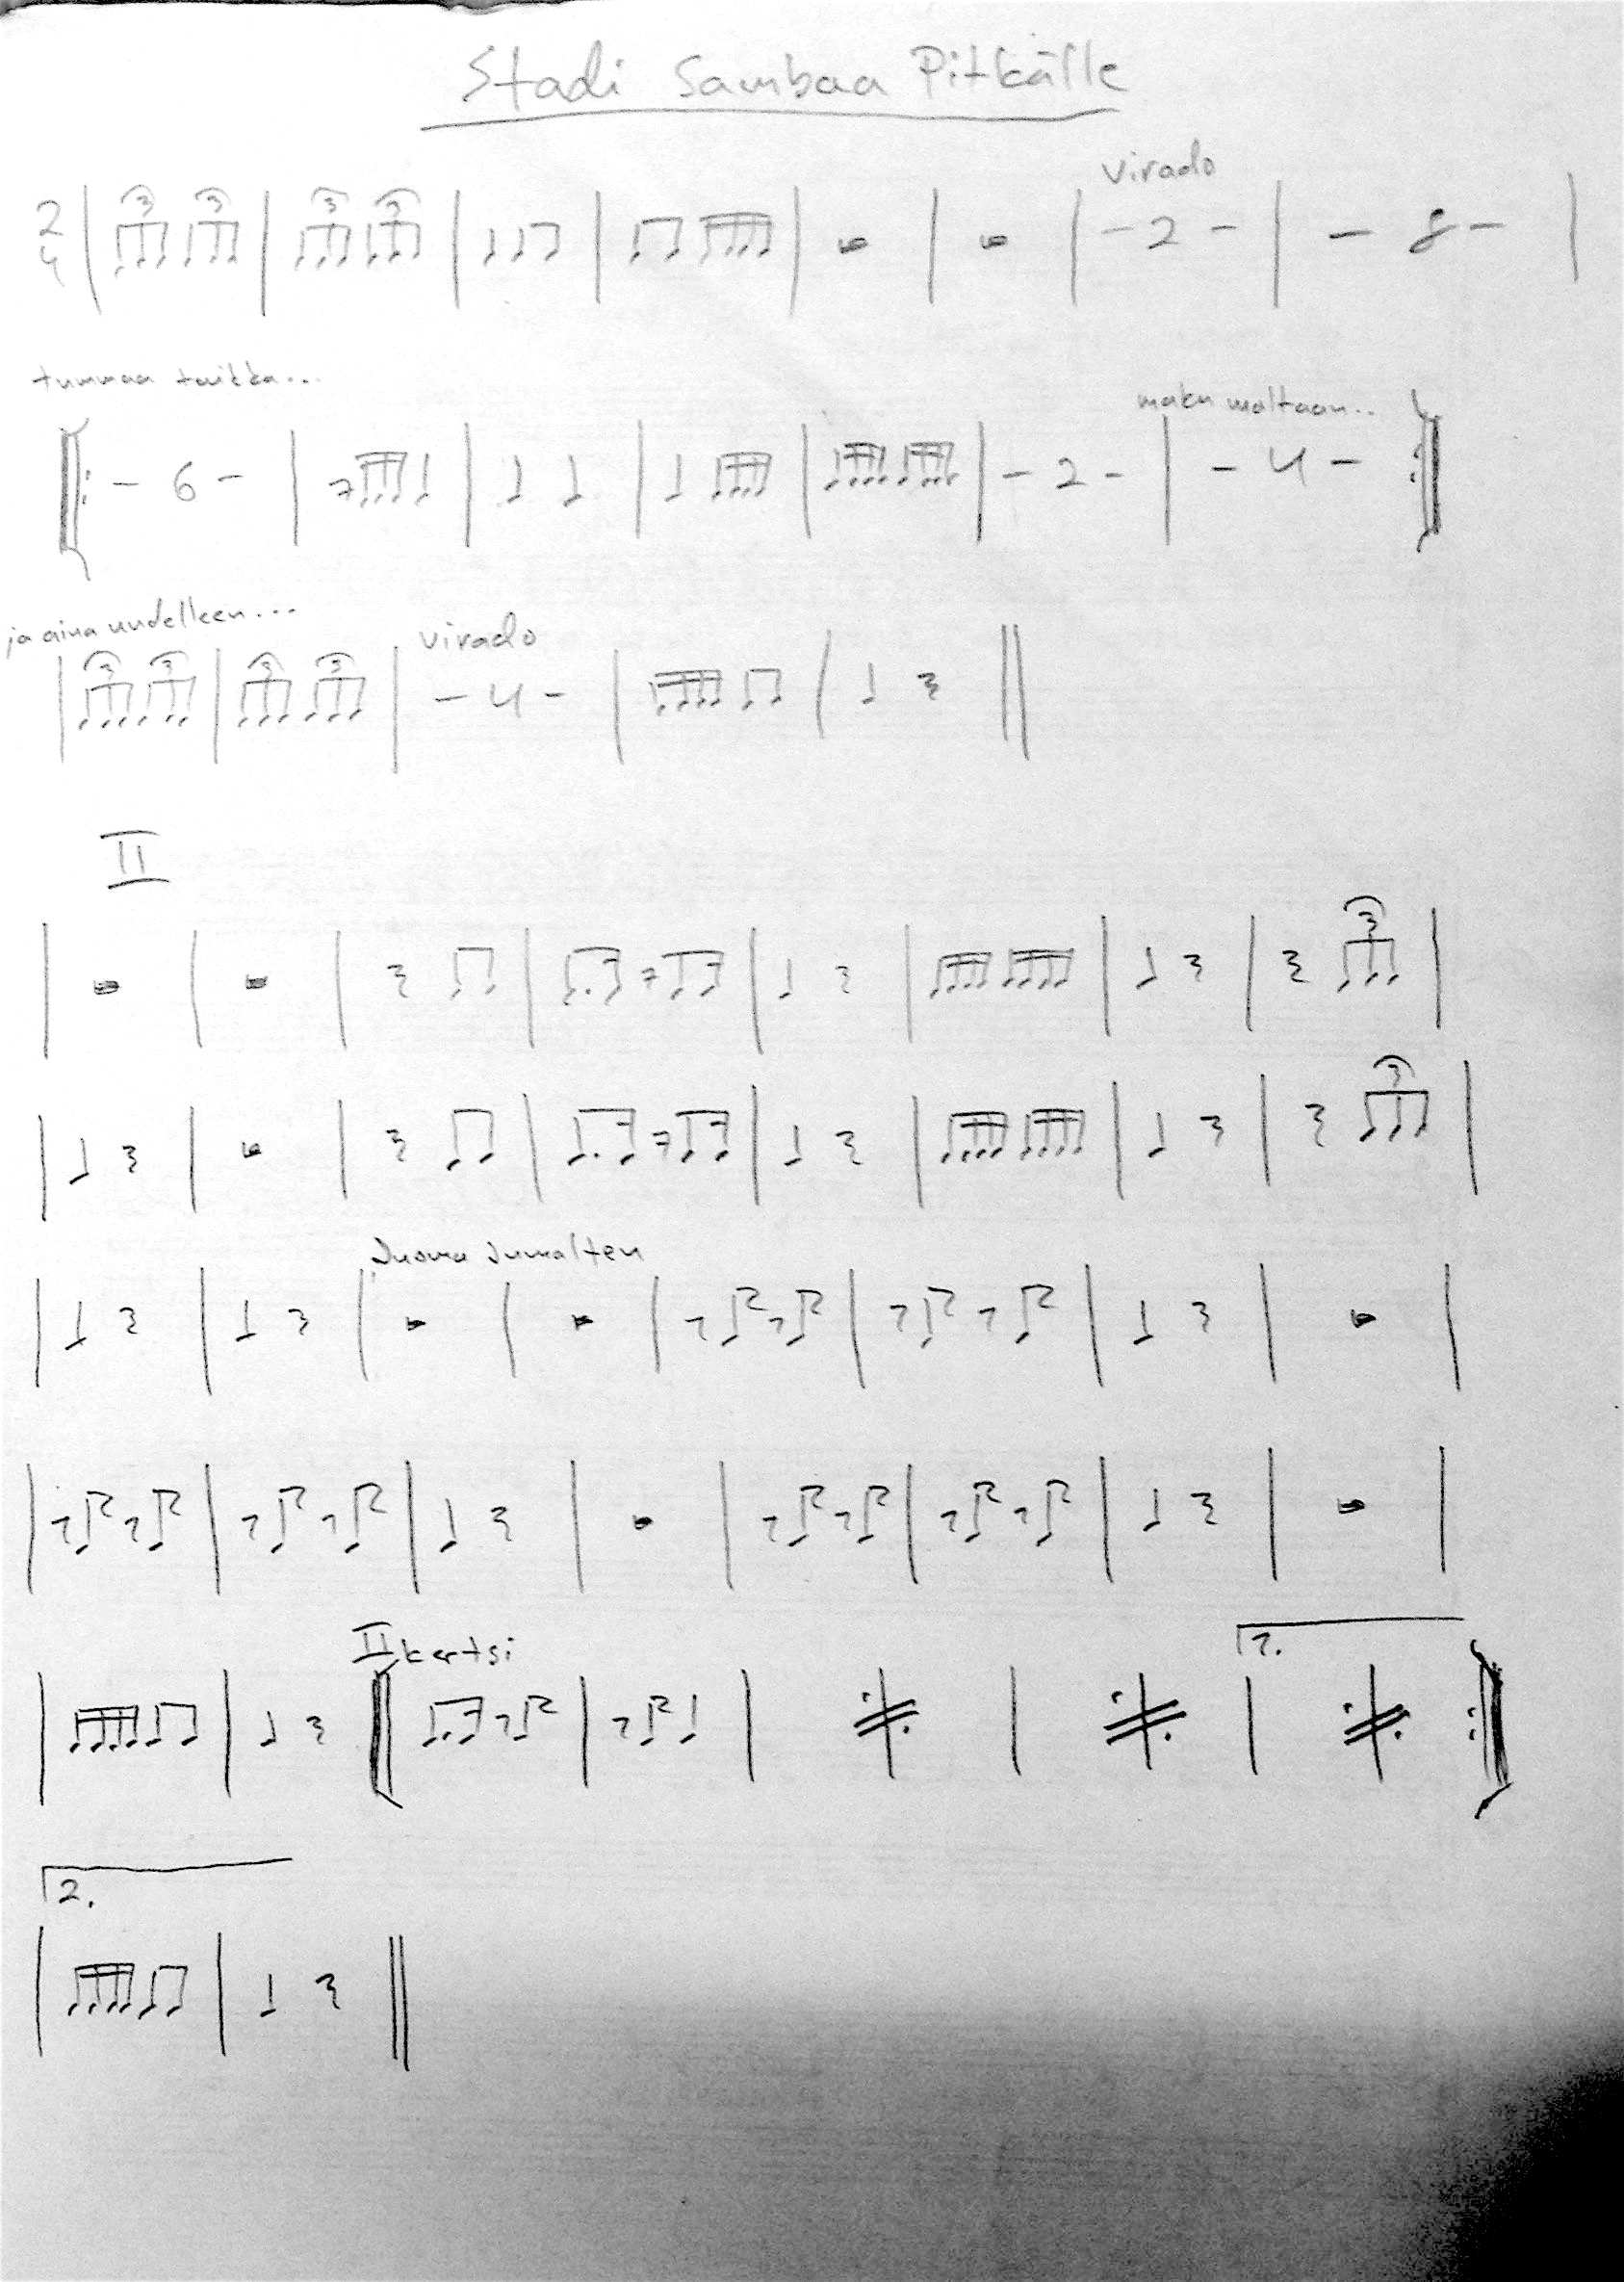 Stadi Sambaa Pitkälle
virado
2 3 3 3 3
4 -2- -8-
tummaa tuikka...
maku maltaan..
-6- -2- -4-
ja aina uudelleen...
virado
3 3 3 3
-4-
II
3
3
Juoma Jumalten
II kertsi
1.
2.